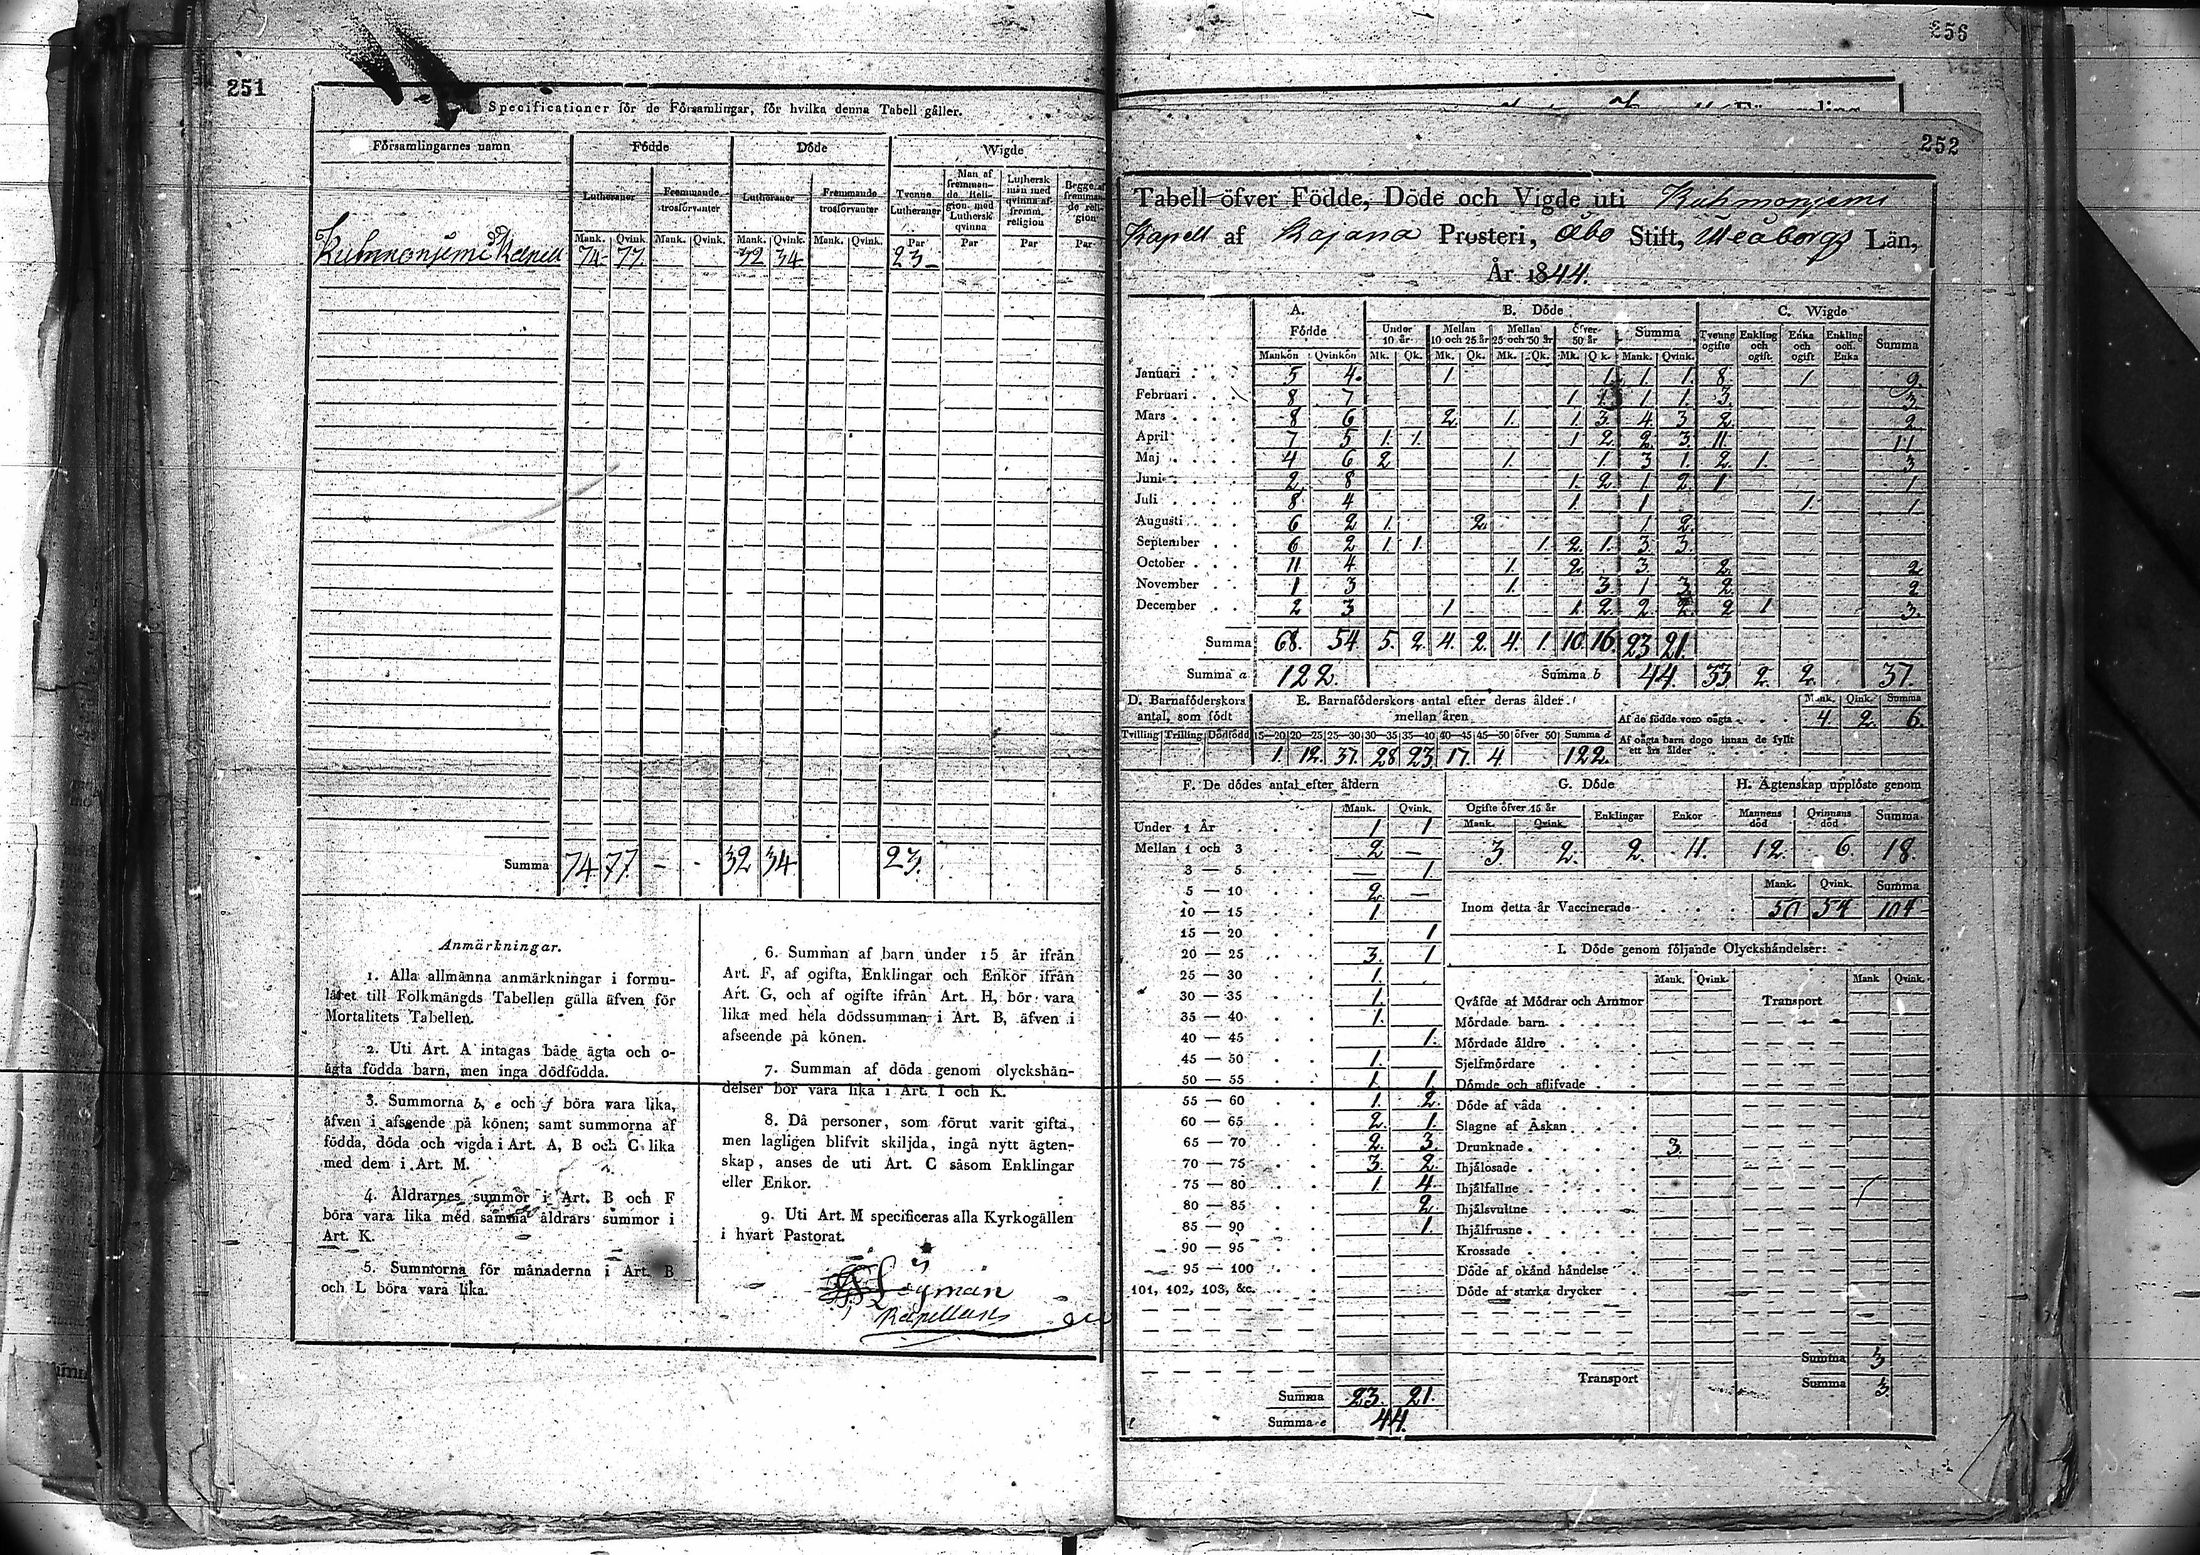 251
Specificationer för de Församlingar, för hvilka denna Tabell gäller.
Församlingarnes namn | Födde | Döde | Wigde
Lutheraner | Fremmande trosförvanter | Lutheraner | Fremmande trosförvanter | Tvenne Lutheraner | Man af fremmande Religion med Luthersk qvinna | Luthersk man med qvinna af fremm. religion | Begge af fremmande religion
Mank. Qvink. Mank. Qvink. Mank. Qvink. Mank. Qvink. Par Par Par Par
Kuhmonjemi Kapell 74 77 32 34 23
Summa 74 77 - - 32 34 23.
Anmärkningar.
1. Alla allmänna anmärkningar i formu-
läret till Folkmängds Tabellen gälla äfven för
Mortalitets Tabellen.
2. Uti Art. A intagas både ägta och o-
ägta födda barn, men inga dödfödda.
3. Summorna b, e och f böra vara lika,
äfven i afseende på könen; samt summorna af
födda, döda och vigda i Art. A, B och C lika
med dem i Art. M.
4. Åldrarnes summor i Art. B och F
böra vara lika med samma åldrars summor i
Art. K.
5. Summorna för månaderna i Art. B
och L böra vara lika.
6. Summan af barn under 15 år ifrån
Art. F, af ogifta, Enklingar och Enkor ifrån
Art. G, och af ogifte ifrån Art. H, bör vara
lika med hela dödssumman i Art. B, äfven i
afseende på könen.
7. Summan af döda genom olyckshän-
delser bör vara lika i Art. I och K.
8. Då personer, som förut varit gifta,
men lagligen blifvit skiljda, ingå nytt ägten-
skap, anses de uti Art. C såsom Enklingar
eller Enkor.
9. Uti Art. M specificeras alla Kyrkogällen
i hvart Pastorat.
Kapellan
256
252
Tabell öfver Födde, Döde och Vigde uti Kuhmonjemi
Kapell af Kajana Prosteri, Åbo Stift, Uleåborgs Län,
År 1844.
A. Födde | B. Döde | C. Wigde
Under 10 år | Mellan 10 och 25 år | Mellan 25 och 50 år | Öfver 50 år | Summa | Tvenne ogifte | Enkling och ogift | Enka och ogift | Enkling och Enka | Summa
Mankön Qvinkön Mk. Qk. Mk. Qk. Mk. Qk. Mk. Qk. Mank. Qvink.
Januari 5 4. 1 1. 1. 1. 8 1 9.
Februari 8 7 1 1. 1 1. 3. 3.
Mars 8 6 2. 1. 1 3. 4 3 2 2
April 7 5 1. 1. 1 2. 2 3. 11. 11
Maj 4 6 2 1. 1. 3 1. 2. 1. 3
Juni 2 8 1. 2. 1 2. 1 1
Juli 8 4 1. 1 1. 1
Augusti 6 2 1. 2. 1 2.
September 6 2 1. 1. 1. 2. 1. 3. 3.
October 11 4 1. 2. 3. 2. 2
November 1 3 1. 3. 1 3. 2. 2
December 2 3 1 1. 2. 2. 2. 2 1 3.
Summa 68. 54. 5. 2. 4. 2. 4. 1. 10. 16. 23 21.
Summa a 122. Summa b 44. 33 2. 2. 37.
D. Barnaföderskors antal, som födt
Tvilling Trilling Dödfödd
E. Barnaföderskors antal efter deras ålder mellan åren
15—20 20—25 25—30 30—35 35—40 40—45 45—50 öfver 50 Summa d
1. 12. 37. 28 23. 17. 4 122.
Mank. Qink. Summa
Af de födde voro oägta 4. 2. 6.
Af oägta barn dogo innan de fyllt
ett års ålder
F. De dödes antal efter åldern
Mank. Qvink.
Under 1 År 1 1
Mellan 1 och 3 2 —
3 — 5 — 1
5 — 10 2 —
10 — 15 1.
15 — 20 1
20 — 25 3. 1
25 — 30 1.
30 — 35 1.
35 — 40 1.
40 — 45 1.
45 — 50 1.
50 — 55 1. 1
55 — 60 1. 2.
60 — 65 2. 1.
65 — 70 2. 3
70 — 75 3. 2.
75 — 80 1. 4
80 — 85 2.
85 — 90 1.
90 — 95
95 — 100
101, 102, 103, &c.
Summa 23. 21.
Summa e 44.
G. Döde
Ogifte öfver 15 år | Enklingar | Enkor
Mank. Qvink.
3 2. 2. 11.
H. Ägtenskap upplöste genom
Mannens död | Qvinnans död | Summa
12. 6. 18.
Mank. Qvink. Summa
Inom detta år Vaccinerade 50 54 104
I. Döde genom följande Olyckshändelser:
Mank. Qvink. Mank Qvink.
Qväfde af Mödrar och Ammor
Transport
Mördade barn
Mördade äldre
Sjelfmördare
Dömde och aflifvade
Döde af våda
Slagne af Åskan
Drunknade 3.
Ihjälosade
Ihjälfallne
Ihjälsvultne
Ihjälfrusne
Krossade
Döde af okänd händelse
Döde af starka drycker
Summa 3
Transport
Summa 3.